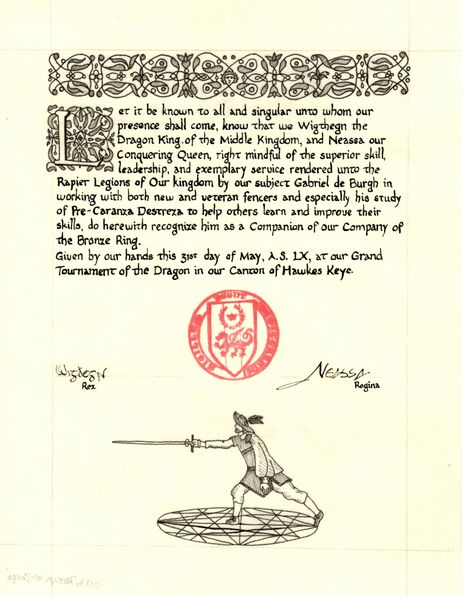 Let it be known to all and singular unto whom our
presence shall come, know that we Wigthegn the
Dragon King of the Middle Kingdom, and Neassa our
Conquering Queen, right mindful of the superior skill,
leadership, and exemplary service rendered unto the
Rapier Legions of Our kingdom by our subject Gabriel de Burgh in
working with both new and veteran fencers and especially his study
of Pre-Caranza Destreza to help others learn and improve their
skills, do herewith recognize him as a Companion of our Company of
the Bronze Ring.
Given by our hands this 31st day of May, A.S. LX, at our Grand
Tournament of the Dragon in our Canton of Hawkes Keye.
Wigthegn
Rex
Neassa
Regina